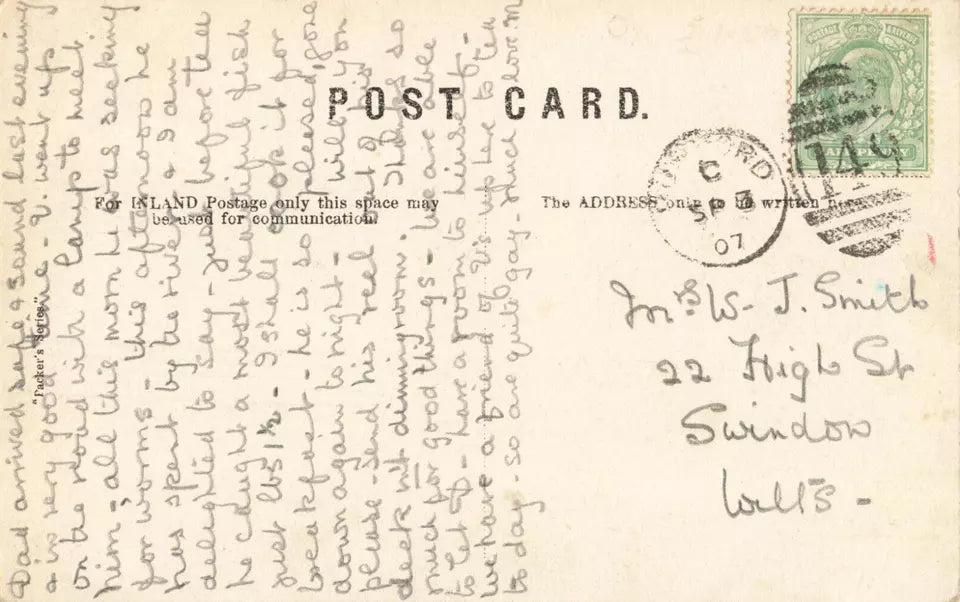 POST CARD.
For INLAND Postage only this space may
be used for communication.
The ADDRESS only to be written here
"Packer's Series."
POSTAGE REVENUE
HALFPENNY
C
SP 3
07
149
Mrs W. J. Smith
22 High St
Swindon
Wilts -
Dad arrived safe & sound last evening
& in very good time - V. went up
on the road with a lamp to meet
him - all this morn he was seeking
for worms - this afternoon he
has spent by the river & I am
delighted to say - just before tea
he caught a most beautiful fish
just lbs 1½ - I shall cook it for
breakfast - he is so pleased, gone
down again to night - will you
please send his reel that I put
desk in dinning room. Thanks so
much for good things - We are able
to let Dad have a room to himself -
we have a friend of V's up here to tea
to day - so are quite gay - Much love. M